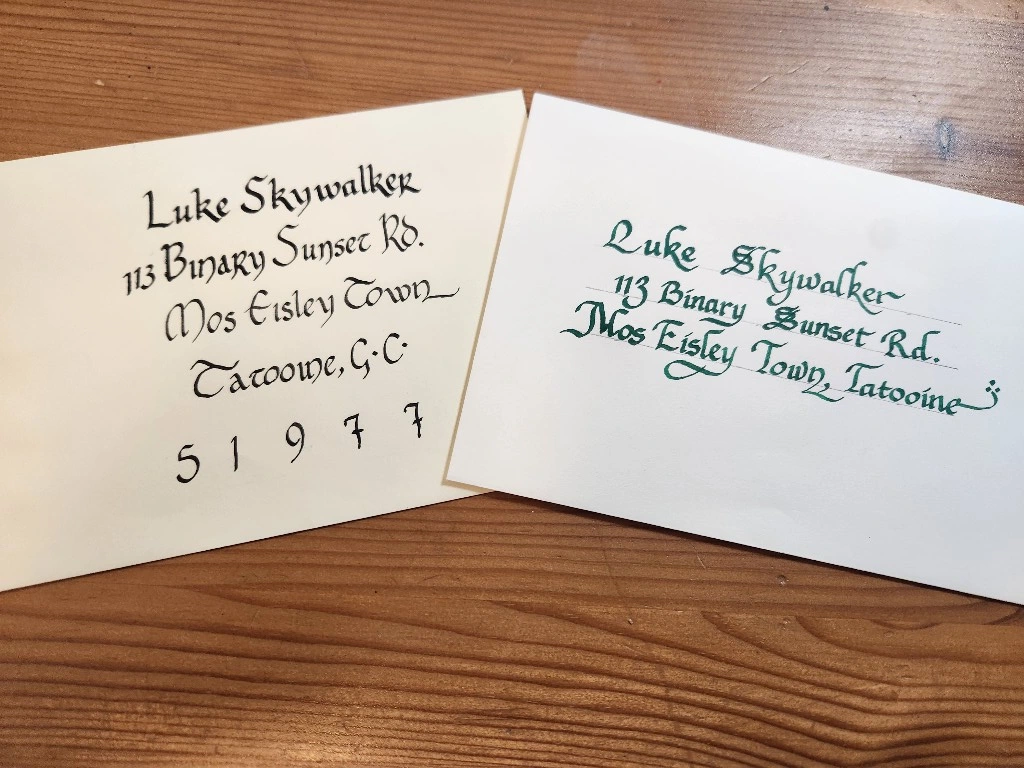 Luke Skywalker
113 Binary Sunset Rd.
Mos Eisley Town
Tatooine, G.C.
5 1 9 7 7
Luke Skywalker
113 Binary Sunset Rd.
Mos Eisley Town, Tatooine